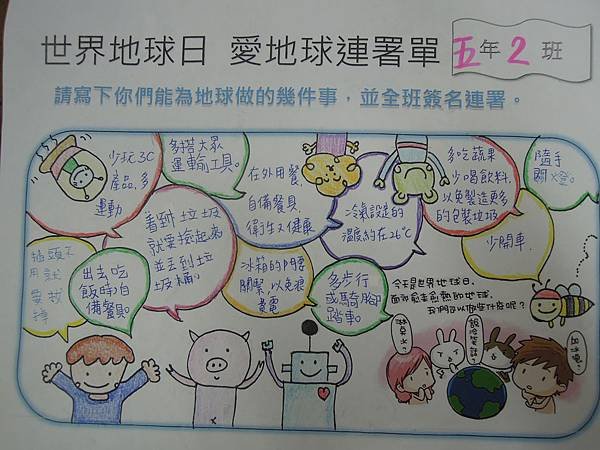 世界地球日 愛地球連署單
五年2班
請寫下你們能為地球做的幾件事，並全班簽名連署。
少玩3C
產品，多
運動
多搭大眾
運輸工具。
看到垃圾
就要撿起來
並丟到垃
圾桶。
在外用餐，
自備餐具，
衛生又健康
冷氣設定的
溫度約在26℃
多吃蔬果
少喝飲料，
以免製造更多
的包裝垃圾
隨手
關燈。
少開車，
插頭不
用就
要拔
掉
出去吃
飯時自
備餐具。
冰箱的門要
關緊，以免浪
費電
多步行
或騎腳
踏車。
今天是世界地球日，
面對愈來愈熱的地球，
我們可以做些什麼呢？
說冷笑話？